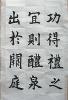 功得禮之
宜則醴泉
出於闕庭